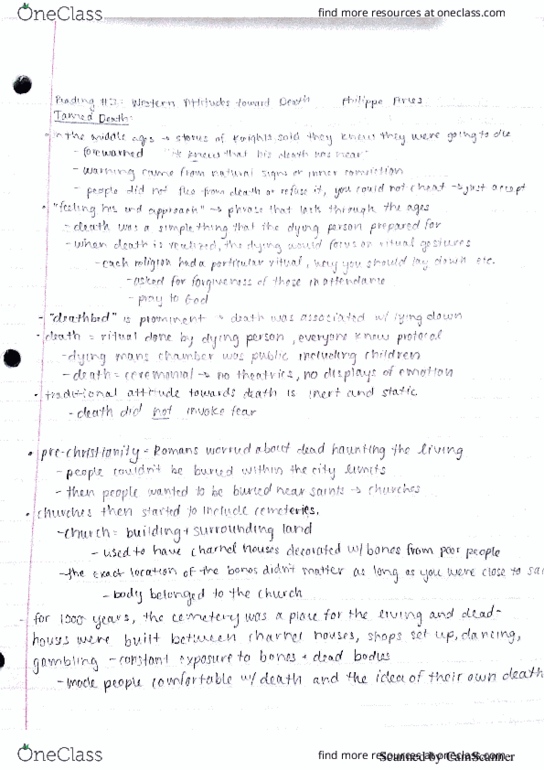 OneClass
find more resources at oneclass.com
Reading #2: Western Attitudes toward Death Philippe Aries
Tamed Death:
- In the middle ages → stories of knights said they knew they were going to die
- forewarned "he knew that his death was near"
- warning came from natural signs or inner conviction
- people did not flee from death or refuse it, you could not cheat → just accept
• "feeling his end approach" → phrase that through the ages
- death was a simple thing that the dying person prepared for
- when death is realized, the dying would focus on ritual gestures
- each religion had a particular ritual, how you should lay down etc.
- asked for forgiveness of those in attendance
- pray to God
- "deathbed" is prominent → death was associated w/ lying down
• death = ritual done by dying person, everyone knew protocal
- dying mans chamber was public including children
- death = ceremonial → no theatrics, no displays of emotion
• traditional attitude towards death is inert and static
- death did not invoke fear
• pre-christianity = Romans worried about dead haunting the living
- people couldn't be buried within the city limits
- then people wanted to be buried near saints → churches
• churches then started to include cemeteries.
- church = building + surrounding land
- used to have charnel houses decorated w/ bones from poor people
- the exact location of the bones didn't matter as long as you were close to sai
- body belonged to the church
- for 1000 years, the cemetery was a place for the living and dead-
houses were built between charnel houses, shops set up, dancing,
gambling - constant exposure to bones + dead bodies
- made people comfortable w/ death and the idea of their own death
Scanned by CamScanner
OneClass
find more resources at oneclass.com